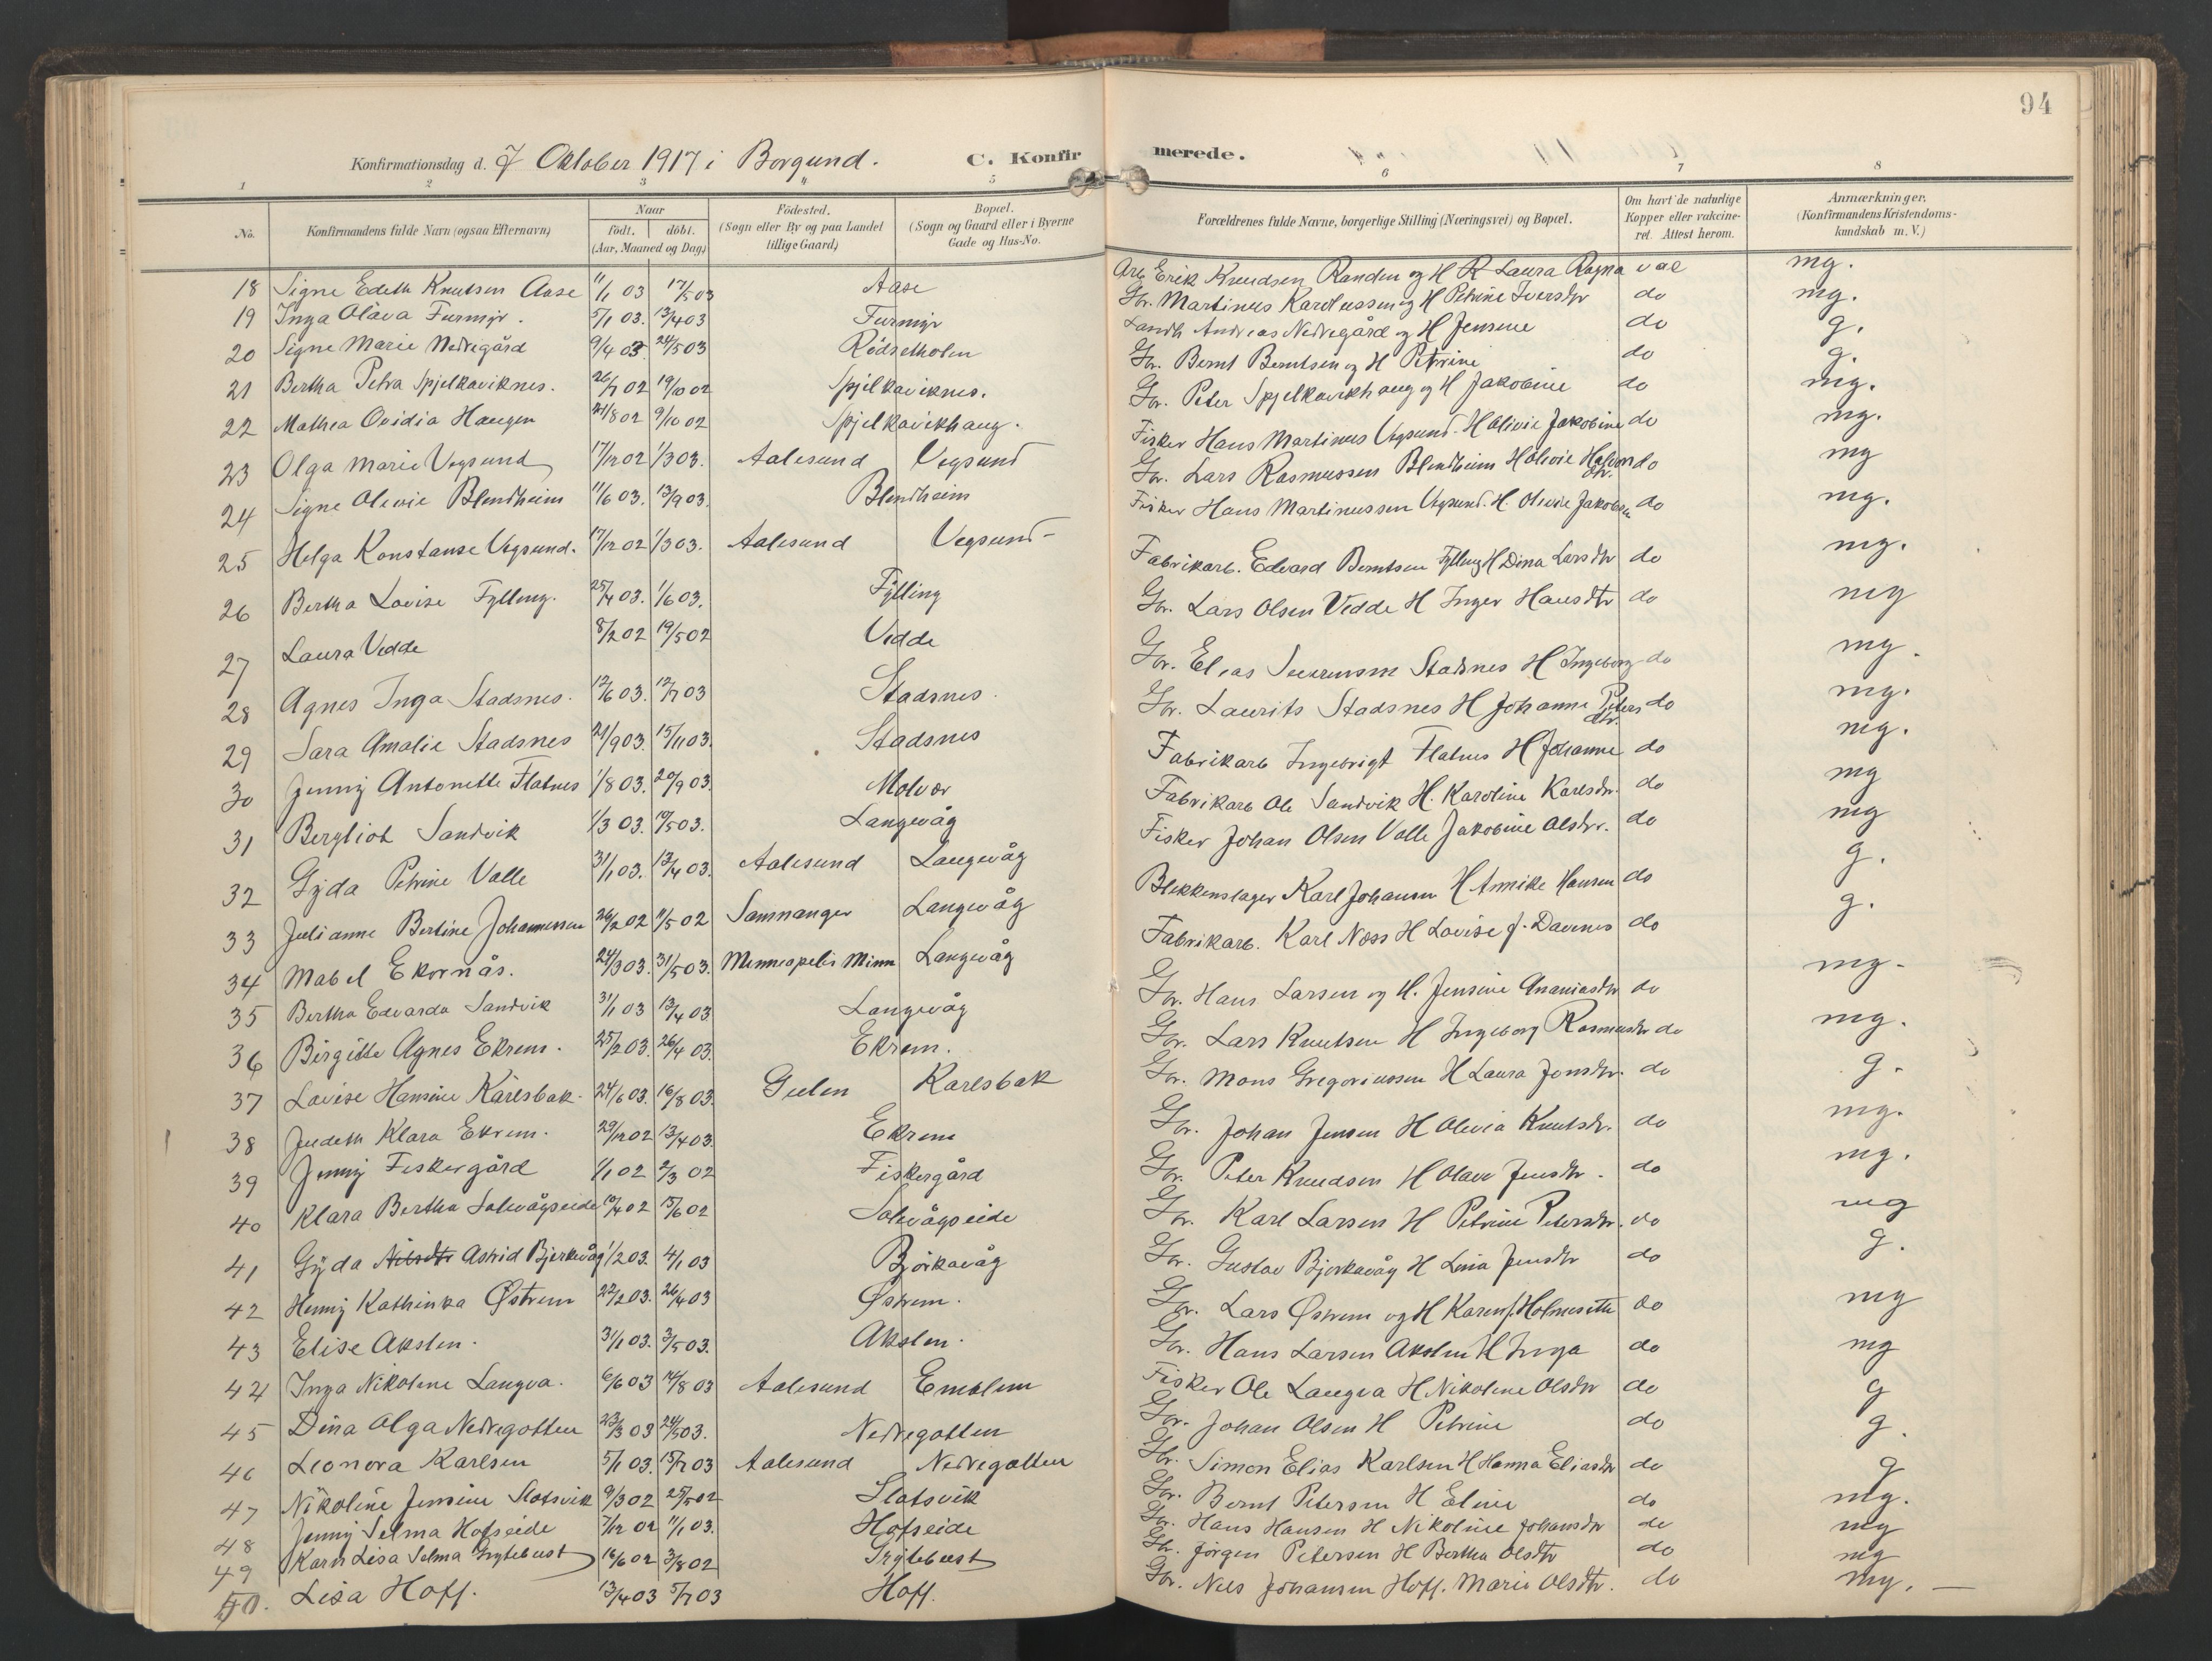 94
Konfirmationsdag d. 7 Oktober 1917 i Borgund. C. Konfirmerede.
1 2 3 4 5 6 7 8
No. Konfirmandens fulde Navn (ogsaa Efternavn) Naar født. døbt. (Aar, Maaned og Dag) Födested. (Sogn eller By og paa Landet tillige Gaard) Bopæl. (Sogn og Gaard eller i Byerne Gade og Hus-No. Forældrenes fulde Navne, borgerlige Stilling (Næringsvei) og Bopæl. Om havt de naturlige Kopper eller vakcineret. Attest herom. Anmærkninger. (Konfirmandens Kristendomskundskab m. V.)
18 Signe Edith Knutsen Aase 11/1 03 17/5 03 Aase Arb Erik Knudsen Randen og H K Laura Ragna vac mg.
19 Inga Oläva Furmyr. 5/1 03. 13/4 03 Furmyr Gbr. Martinus Karolussen og H Petrine Iversdtr do mg.
20 Signe Marie Nedregård 9/4 03. 24/5 03 Rödsetholen Landh Andreas Nedregård og H Jensine do g.
21 Bertha Petra Spjelkaviknes. 26/7 02 19/10 02 Spjelkaviknes. Gbr. Bernt Berntsen og H Petrine do g.
22 Mathea Ovidia Haugen 21/8 02 9/10 02 Spjelkavikhaug. Gbr. Peter Spjelkavikhaug og H Jakobine do mg.
23 Olga Marie Vegsund 17/12 02 1/3 03. Aalesund Vegsund Fisker Hans Martinus Vegsund. H Olivie Jakobine do mg.
24 Signe Olivie Blendheim 11/6 03. 13/9 03. Blendheim Gbr. Lars Rasmussen Blendheim H Olivie Halvor dtr. do mg
25 Helga Konstanse Vegsund. 17/12 02 1/3 03. Aalesund Vegsund Fisker Hans Martinussen Vegsund. H. Olivie Jakobsen do mg.
26 Bertha Lovise Fylling. 25/4 03. 1/6 03. Fylling Fabrikarb. Edvard Berntsen Fylling H Dina Larsdtr do mg.
27 Laura Vedde 8/2 02 19/5 02 Vedde Gbr. Lars Olsen Vedde H Inger Hansdtr do mg
28 Agnes Inga Stadsnes. 12/6 03. 12/7 03 Stadsnes. Gbr. Elias Severinsen Stadsnes H Ingeborg do mg.
29 Sara Amalie Stadsnes 21/9 03. 15/11 03. Stadsnes Gbr. Laurits Stadsnes H Johanne Peters dtr. do mg.
30 Jenny Antonette Flatnes 1/8 03. 20/9 03. Molvær Fabrikarb Ingebrigt Flatnes H Johanne do mg.
31 Bergliot Sandvik 1/3 03. 10/5 03. Langevåg Fabrikarb Ole Sandvik H. Karoline Karlsdtr. do mg
32 Gyda Petrine Valle 31/1 03. 13/4 03. Aalesund Langevåg Fisker Johan Olsen Valle Jakobine Olsdtr. do mg
33 Julianne Bertine Johannessen 26/2 02 11/5 02 Samnanger Langevåg Blekkenslager Karl Johansen H Annike Hansen do g.
34 Mabel Ekornås. 24/3 03. 31/5 03. Minneapolis Minn Langevåg Fabrikarb. Karl Næss H Lovise f. Davenes do g.
35 Bertha Edvarda Sandvik 31/1 03 13/4 03 Langevåg Gbr. Hans Larsen og H. Jensine Ananiasdtr do mg.
36 Birgitte Agnes Ekrem. 25/2 03. 26/4 03. Ekrem. Gbr. Lars Knutsen H Ingeborg Rasmusdtr do mg.
37 Lovise Hansine Karlsbak. 24/6 03. 16/8 03. Gulen Karlsbak Gbr. Mons Gregoriussen H Laura Jonsdtr. do g.
38 Judeth Klara Ekrem. 29/12 02 13/4 03. Ekrem Gbr. Johan Jensen H Olevia Knutsdtr. do mg.
39 Jenny Fiskergård 1/1 02 2/3 02 Fiskergård Gbr. Peter Knudsen H Olave Jensdtr. do mg.
40 Klara Bertha Solevågseide 10/4 02 15/6 02 Solevågseide Gbr. Karl Larsen H Petrine Petersdtr. do mg
41 Gyda Nilsdtr Astrid Bjørkevåg 1/2 03. 4/1 03 Bjørkavåg Gbr. Gustav Bjørkavåg H Lina Jensdtr do g.
42 Henny Kathinka Østrem 22/2 03. 26/4 03 Østrem. Gbr. Lars Østrem og H Karen f. Holmesette do mg
43 Elise Akslen. 31/1 03. 3/5 03. Akslen. Gbr. Hans Larsen Akslen H Inga do mg
44 Inga Nikoline Langva. 6/6 03 16/8 03 Aalesund Emblem Fisker Ole Langva H Nikoline Olsdtr do g
45 Dina Olga Nedregotten 23/3 03 24/5 03. Nedregotten Gbr. Johan Olsen H Petrine do g.
46 Leonora Karlsen 5/1 03. 15/7 03 Aalesund Nedregotten Gbr. Simon Elias Karlsen H Hanna Eliasdtr do g
47 Nikoline Jensine Slotsvik 9/3 02 25/5 02 Slotsvik Gbr. Bernt Petersen H Eline do mg.
48 Jenny Selma Hofseide 7/12 02 11/1 03. Hofseide Gbr. Hans Hansen H Nikoline Johansdtr do mg
49 Karn Lisa Selma Grytebust 16/6 02 3/8 02 Grytebust Gbr. Jörgen Petersen H Bertha Olsdtr do mg
50. Lisa Hoff. 13/4 03 5/7 03 Hoff. Gbr. Nils Johansen Hoff. Marie Olsdtr. do mg.